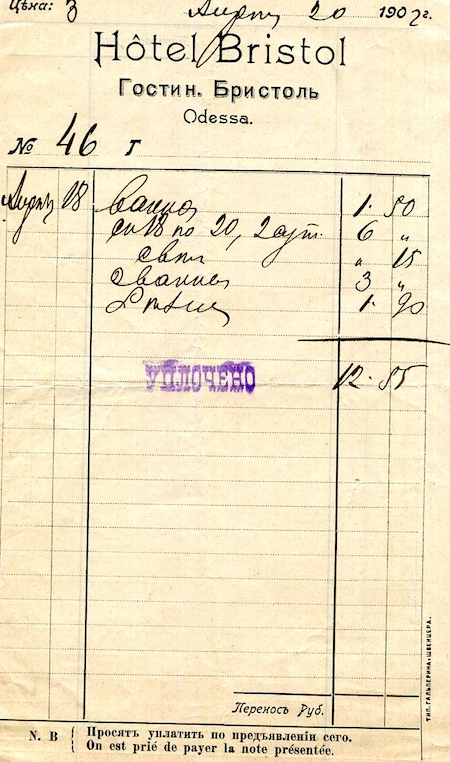 Цѣна: 3
20 190 г.
Hôtel Bristol
Гостин. Бристоль
Odessa.
№ 46 Г
18 Ванна 1. 50
с 18 по 20, 2 сут. 6 „
„ 15
2 ванны 3 „
1. 90
УПЛОЧЕНО
12. 55
Переносъ Руб.
N. B Просятъ уплатить по предъявленіи сего.
On est prié de payer la note présentée.
ТИП. ГАЛЬПЕРИНА и ШВЕЙЦЕРА.